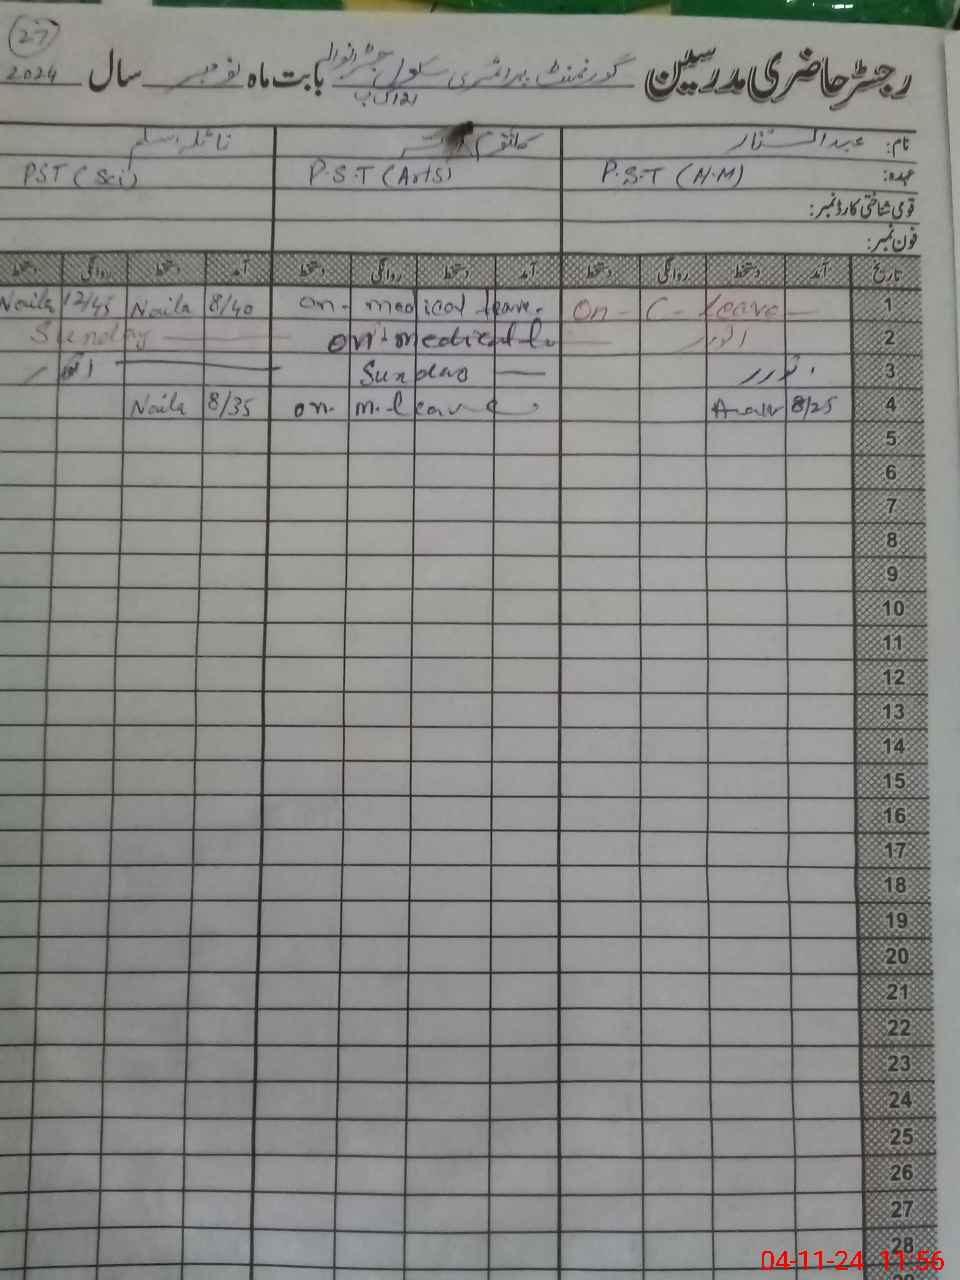 27
رجسٹر حاضری مدرسین گورنمنٹ پرائمری سکول بابت ماہ نومبر سال 2024
نام: عبدالستار کلثوم نائلہ اسلم
عہدہ: P.S.T (H.M) P.S.T (Arts) PST (Sci)
قومی شناختی کارڈ نمبر:
فون نمبر:
تاریخ آمد دستخط روانگی دستخط آمد دستخط روانگی دستخط آمد دستخط روانگی دستخط
1 On - C - Leave on - medical leave. 8/40 Naila 12/45 Naila
2 اتوار on medical Sunday
3 Sunday
4 8/25 on. m. leave 8/35 Naila
5
6
7
8
9
10
11
12
13
14
15
16
17
18
19
20
21
22
23
24
25
26
27
28
04-11-24 11:56